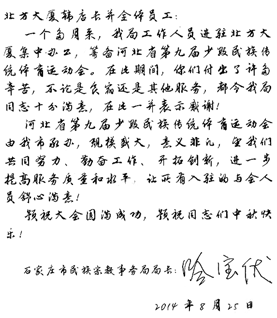 北方大厦韩店长并全体员工：
一个多月来，我局工作人员进驻北方大
厦集中办公，筹备河北省第九届少数民族传
统体育运动会。在此期间，你们付出了许多
辛苦，不论是食宿还是其他服务，都令我局
同志十分满意，在此一并表示感谢！
河北省第九届少数民族传统体育运动会
由我市承办，规模盛大，意义非凡，望我们
共同努力、勤奋工作、开拓创新，进一步
提高服务质量和水平，让所有入驻的与会人
员舒心满意！
预祝大会圆满成功，预祝同志们中秋快
乐！
石家庄市民族宗教事务局局长：哈宝伏
2014年8月25日